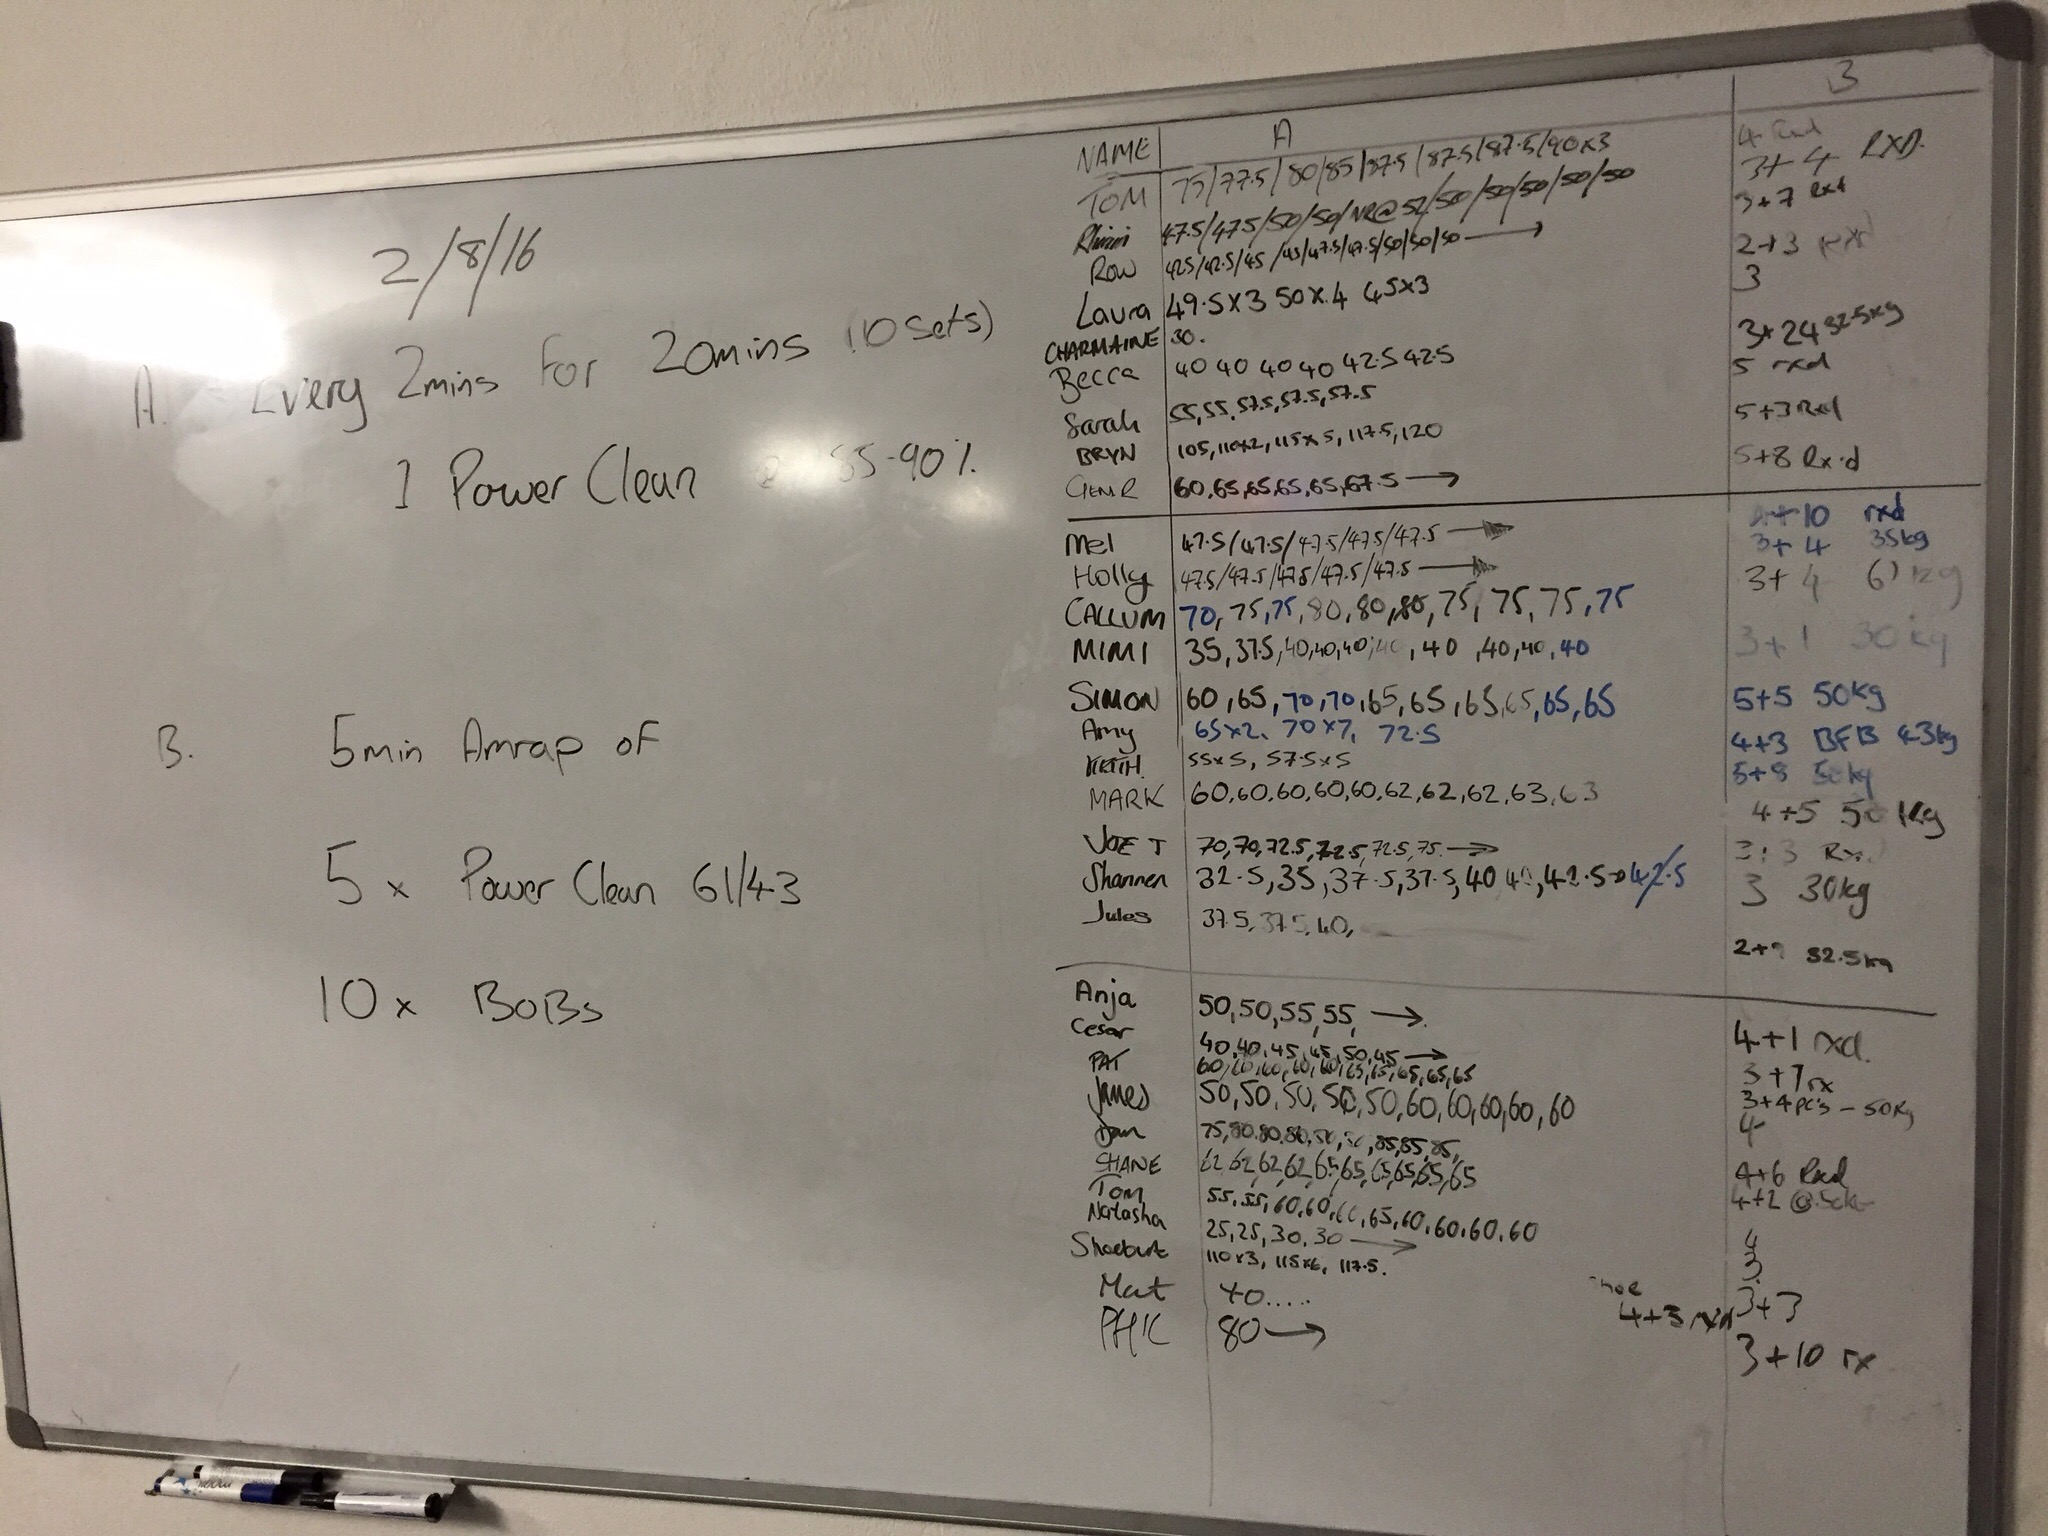 2/8/16
A. Every 2mins For 20mins (10 Sets)
1 Power Clean @ 85-90%
B. 5min Amrap of
5 x Power Clean 61/43
10 x BOBs
NAME A B
TOM 75/77.5/80/85/87.5/87.5/87.5/90x3
4 Rxd
47.5/47.5/50/50/NR@52/50/50/50/50/50
3+4 RXD.
Row 42.5/42.5/45/45/47.5/47.5/50/50/50 →
3+7 Rxd
Laura 49.5x3 50x4 45x3
2+3 rxd
CHARMAINE 30.
3
Becca 40 40 40 40 42.5 42.5
3+24 32.5kg
Sarah 55,55,57.5,57.5,57.5
5 rxd
BRYN 105,110x2,115x5,117.5,120
5+3 Rxd
60,65,65,65,65,67.5 →
5+8 Rx'd
Mel 47.5/47.5/47.5/47.5/47.5 →
4+10 rxd
Holly 47.5/47.5/47.5/47.5/47.5 →
3+4 35kg
CALLUM 70,75,75,80,80,80,75,75,75,75
3+4 61kg
MIMI 35,37.5,40,40,40,40,40,40,40,40
3+1 30kg
SIMON 60,65,70,70,65,65,65,65,65,65
5+5 50kg
Amy 65x2, 70x7, 72.5
4+3 BFB 43kg
KEITH 55x5, 57.5x5
5+8 50kg
MARK 60,60,60,60,60,62,62,62,63,63
4+5 50kg
JOE T 70,70,72.5,72.5,72.5,75 →
3+3 Rx
Shannen 32.5,35,37.5,37.5,40 40,42.5→42.5
3 30kg
Jules 37.5,37.5,40,
32.5kg
Anja 50,50,55,55, →
4+1 rxd.
Cesar 40,40,45,45,50,45 →
3+7 rx
PAT 60,60,60,60,60,65,65,65,65,65
3+4 PC's - 50kg
James 50,50,50,50,50,60,60,60,60,60
4
Dan 75,80,80,80,80,80,85,85,85,
4+6 Rxd
SHANE 62 62,62,62,65,65,65,65,65,65
4+2 @50kg
Tom 55,55,60,60,60,65,60,60,60,60
4
Natasha 25,25,30,30 →
3
110x3, 115x6, 117.5.
4+3 rxd
Mat 40.....
3+3
PHIL 80 →
3+10 rx